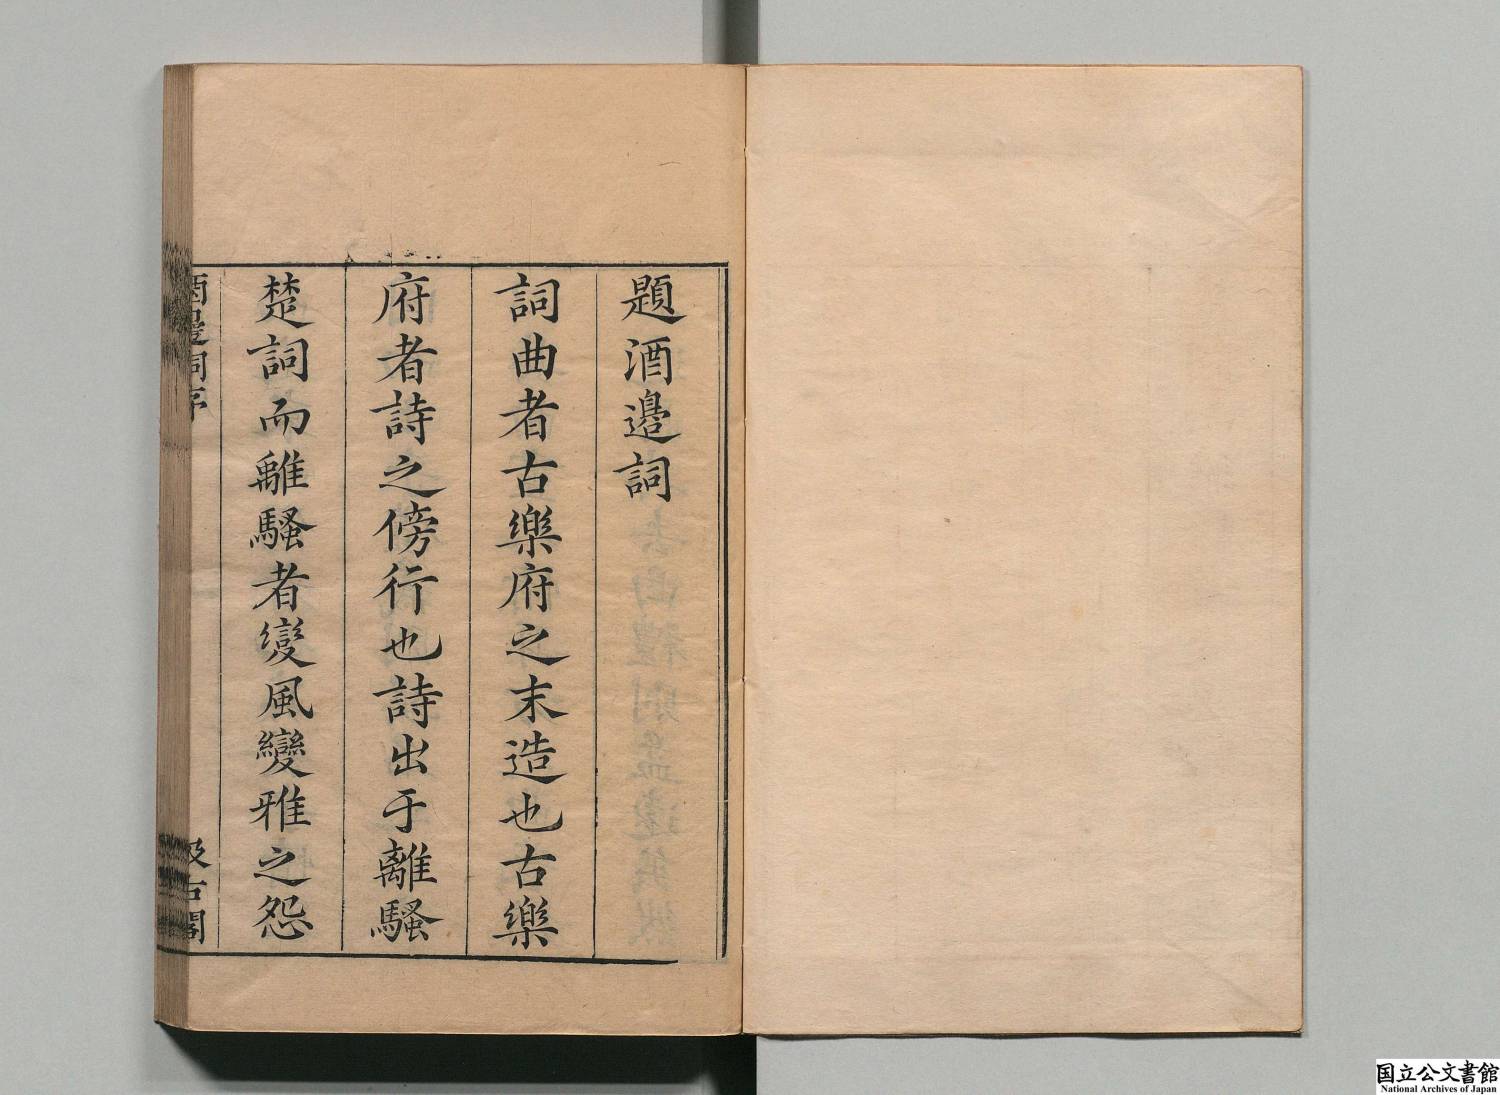 題酒邉詞
詞曲者古樂府之末造也古樂
府者詩之傍行也詩出于離騷
楚詞而離騷者變風變雅之怨
酒邉詞序
汲古閣
国立公文書館
National Archives of Japan